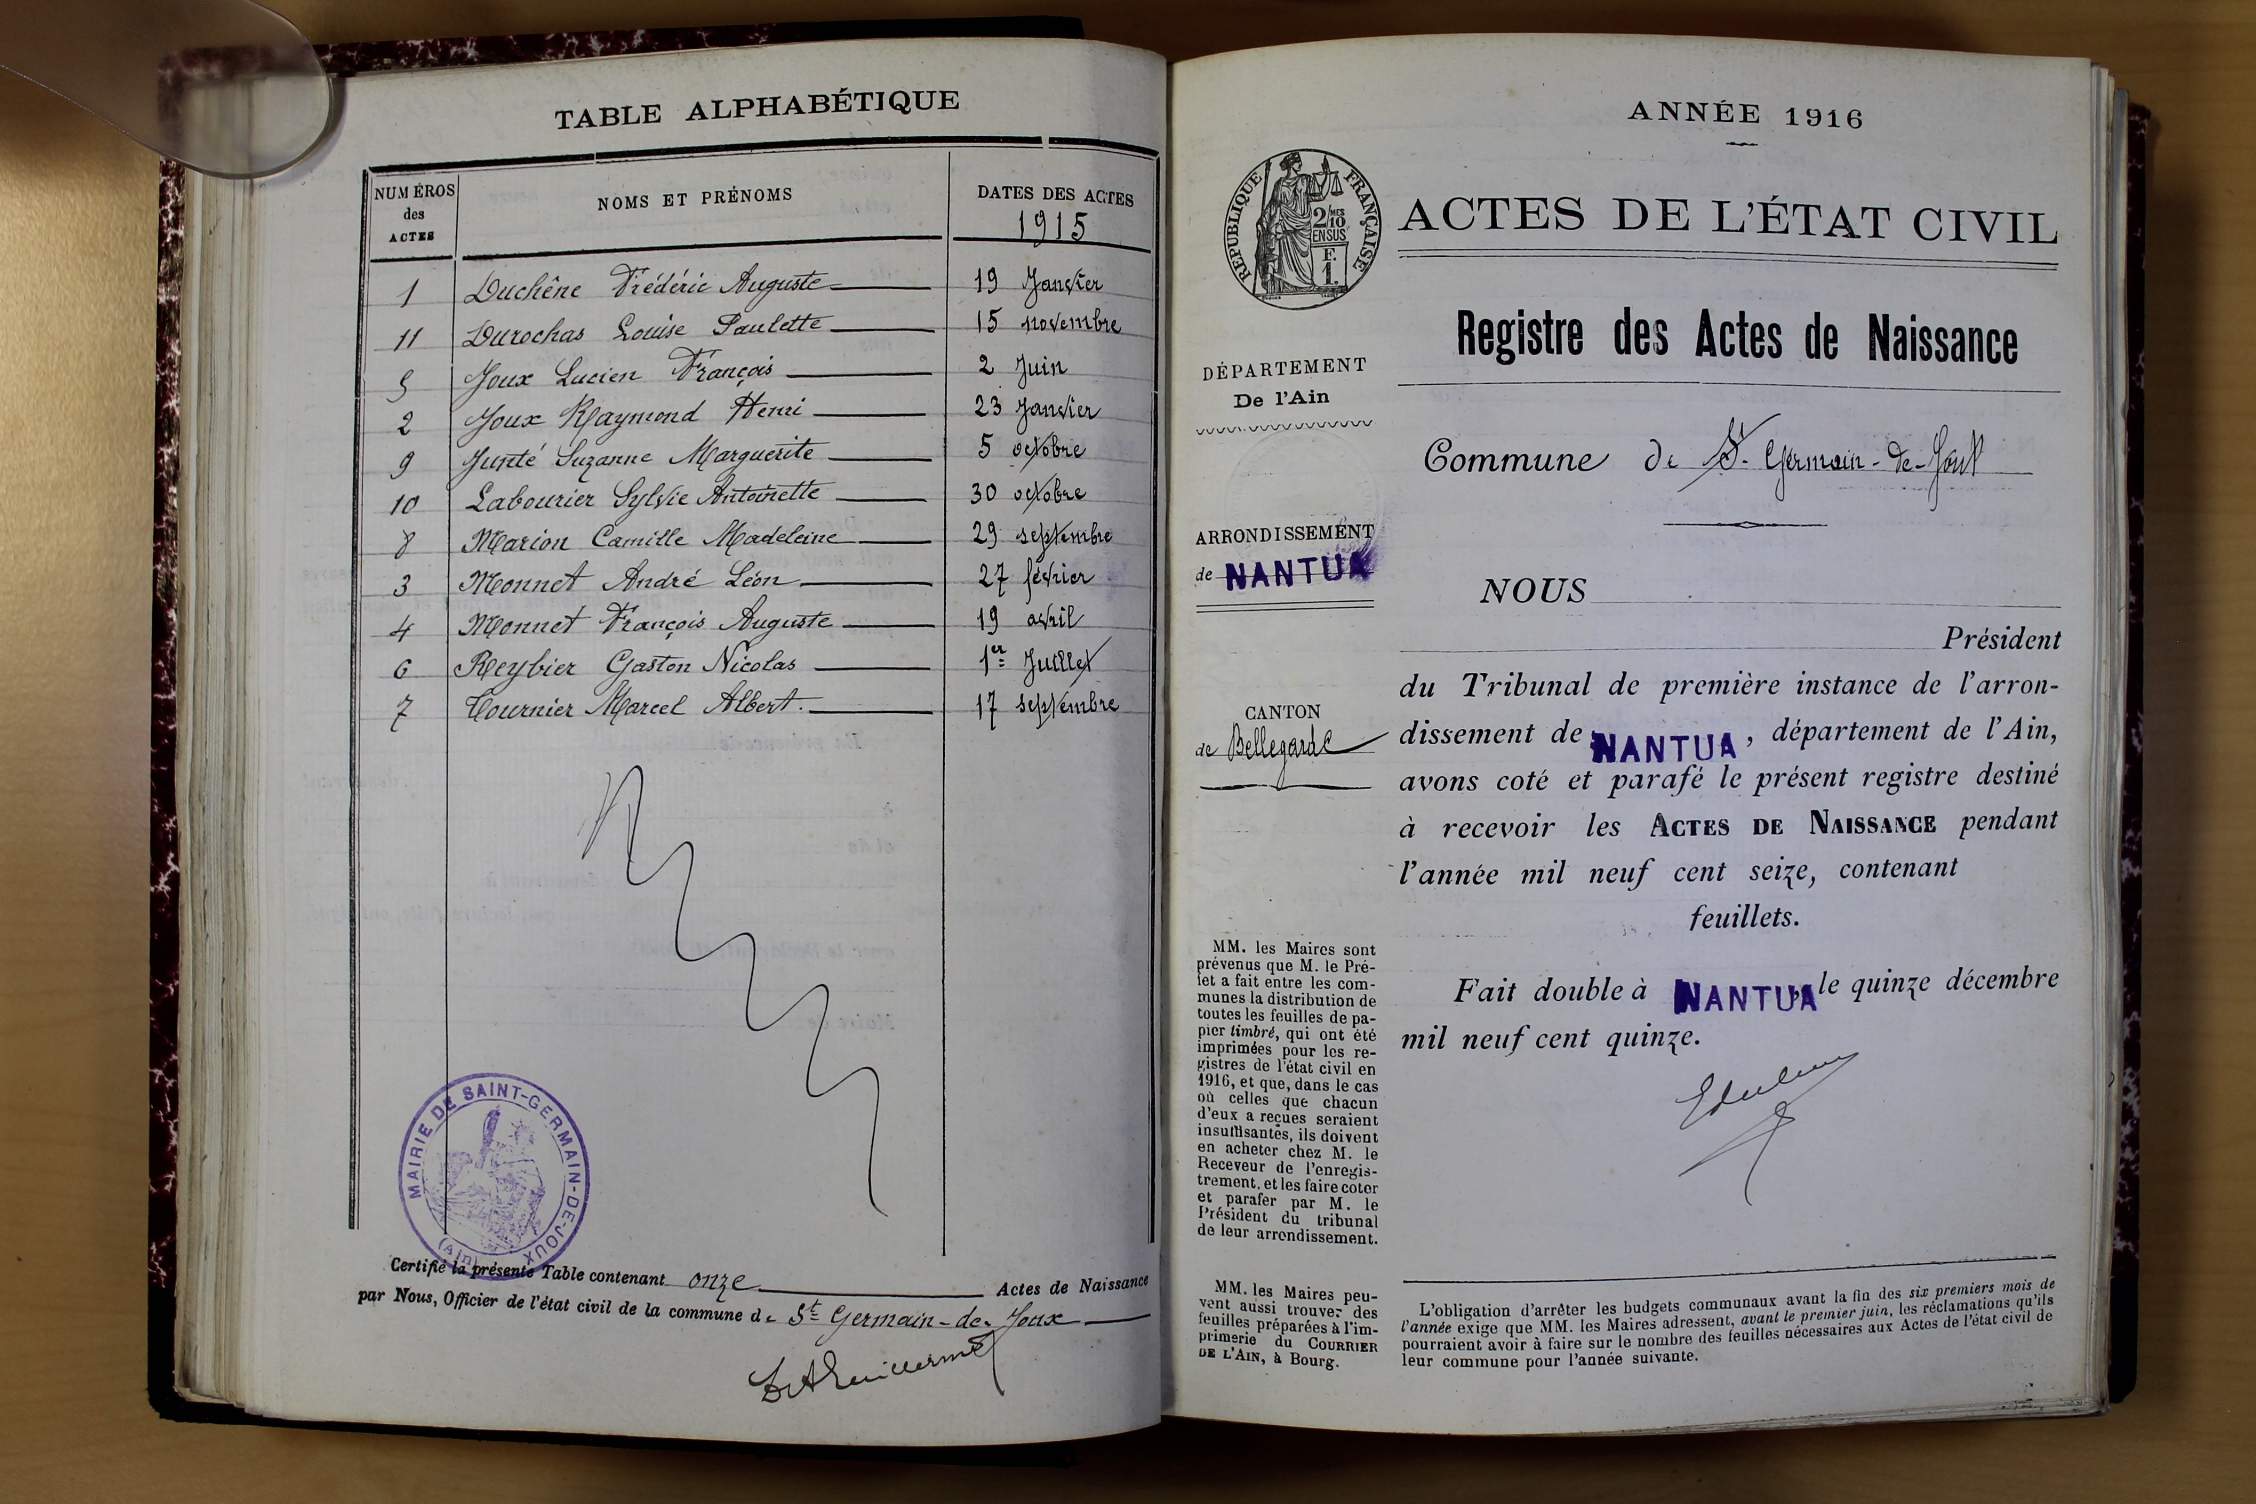 TABLE ALPHABÉTIQUE
NUMÉROS
des
ACTES
NOMS ET PRÉNOMS
DATES DES ACTES
1915
1 Duchêne Frédéric Auguste 19 Janvier
11 Durochas Louise Paulette 15 novembre
5 Joux Lucien François 2 Juin
2 Joux Raymond Henri 23 Janvier
9 Junté Suzanne Marguerite 5 octobre
10 Labourier Sylvie Antoinette 30 octobre
8 Marion Camille Madeleine 29 septembre
3 Monnet André Léon 27 février
4 Monnet François Auguste 19 avril
6 Reybier Gaston Nicolas 1er Juillet
7 Tournier Marcel Albert. 17 septembre
MAIRIE DE SAINT-GERMAIN-DE-JOUX
(AIN)
Certifié la présente Table contenant onze Actes de Naissance
par Nous, Officier de l'état civil de la commune de St Germain-de-Joux
ANNÉE 1916
RÉPUBLIQUE FRANÇAISE
2/10
MES
EN SUS
F.
1.
ACTES DE L'ÉTAT CIVIL
Registre des Actes de Naissance
DÉPARTEMENT
De l'Ain
Commune de St-Germain-de-Joux
ARRONDISSEMENT
de NANTUA
CANTON
de Bellegarde
NOUS
Président
du Tribunal de première instance de l'arron-
dissement de NANTUA, département de l'Ain,
avons coté et parafé le présent registre destiné
à recevoir les ACTES DE NAISSANCE pendant
l'année mil neuf cent seize, contenant
feuillets.
Fait double à NANTUA, le quinze décembre
mil neuf cent quinze.
MM. les Maires sont
prévenus que M. le Pré-
fet a fait entre les com-
munes la distribution de
toutes les feuilles de pa-
pier timbré, qui ont été
imprimées pour les re-
gistres de l'état civil en
1916, et que, dans le cas
où celles que chacun
d'eux a reçues seraient
insuffisantes, ils doivent
en acheter chez M. le
Receveur de l'enregis-
trement, et les faire coter
et parafer par M. le
Président du tribunal
de leur arrondissement.
MM. les Maires peu-
vent aussi trouver des
feuilles préparées à l'im-
primerie du COURRIER
DE L'AIN, à Bourg.
L'obligation d'arrêter les budgets communaux avant la fin des six premiers mois de
l'année exige que MM. les Maires adressent, avant le premier juin, les réclamations qu'ils
pourraient avoir à faire sur le nombre des feuilles nécessaires aux Actes de l'état civil de
leur commune pour l'année suivante.